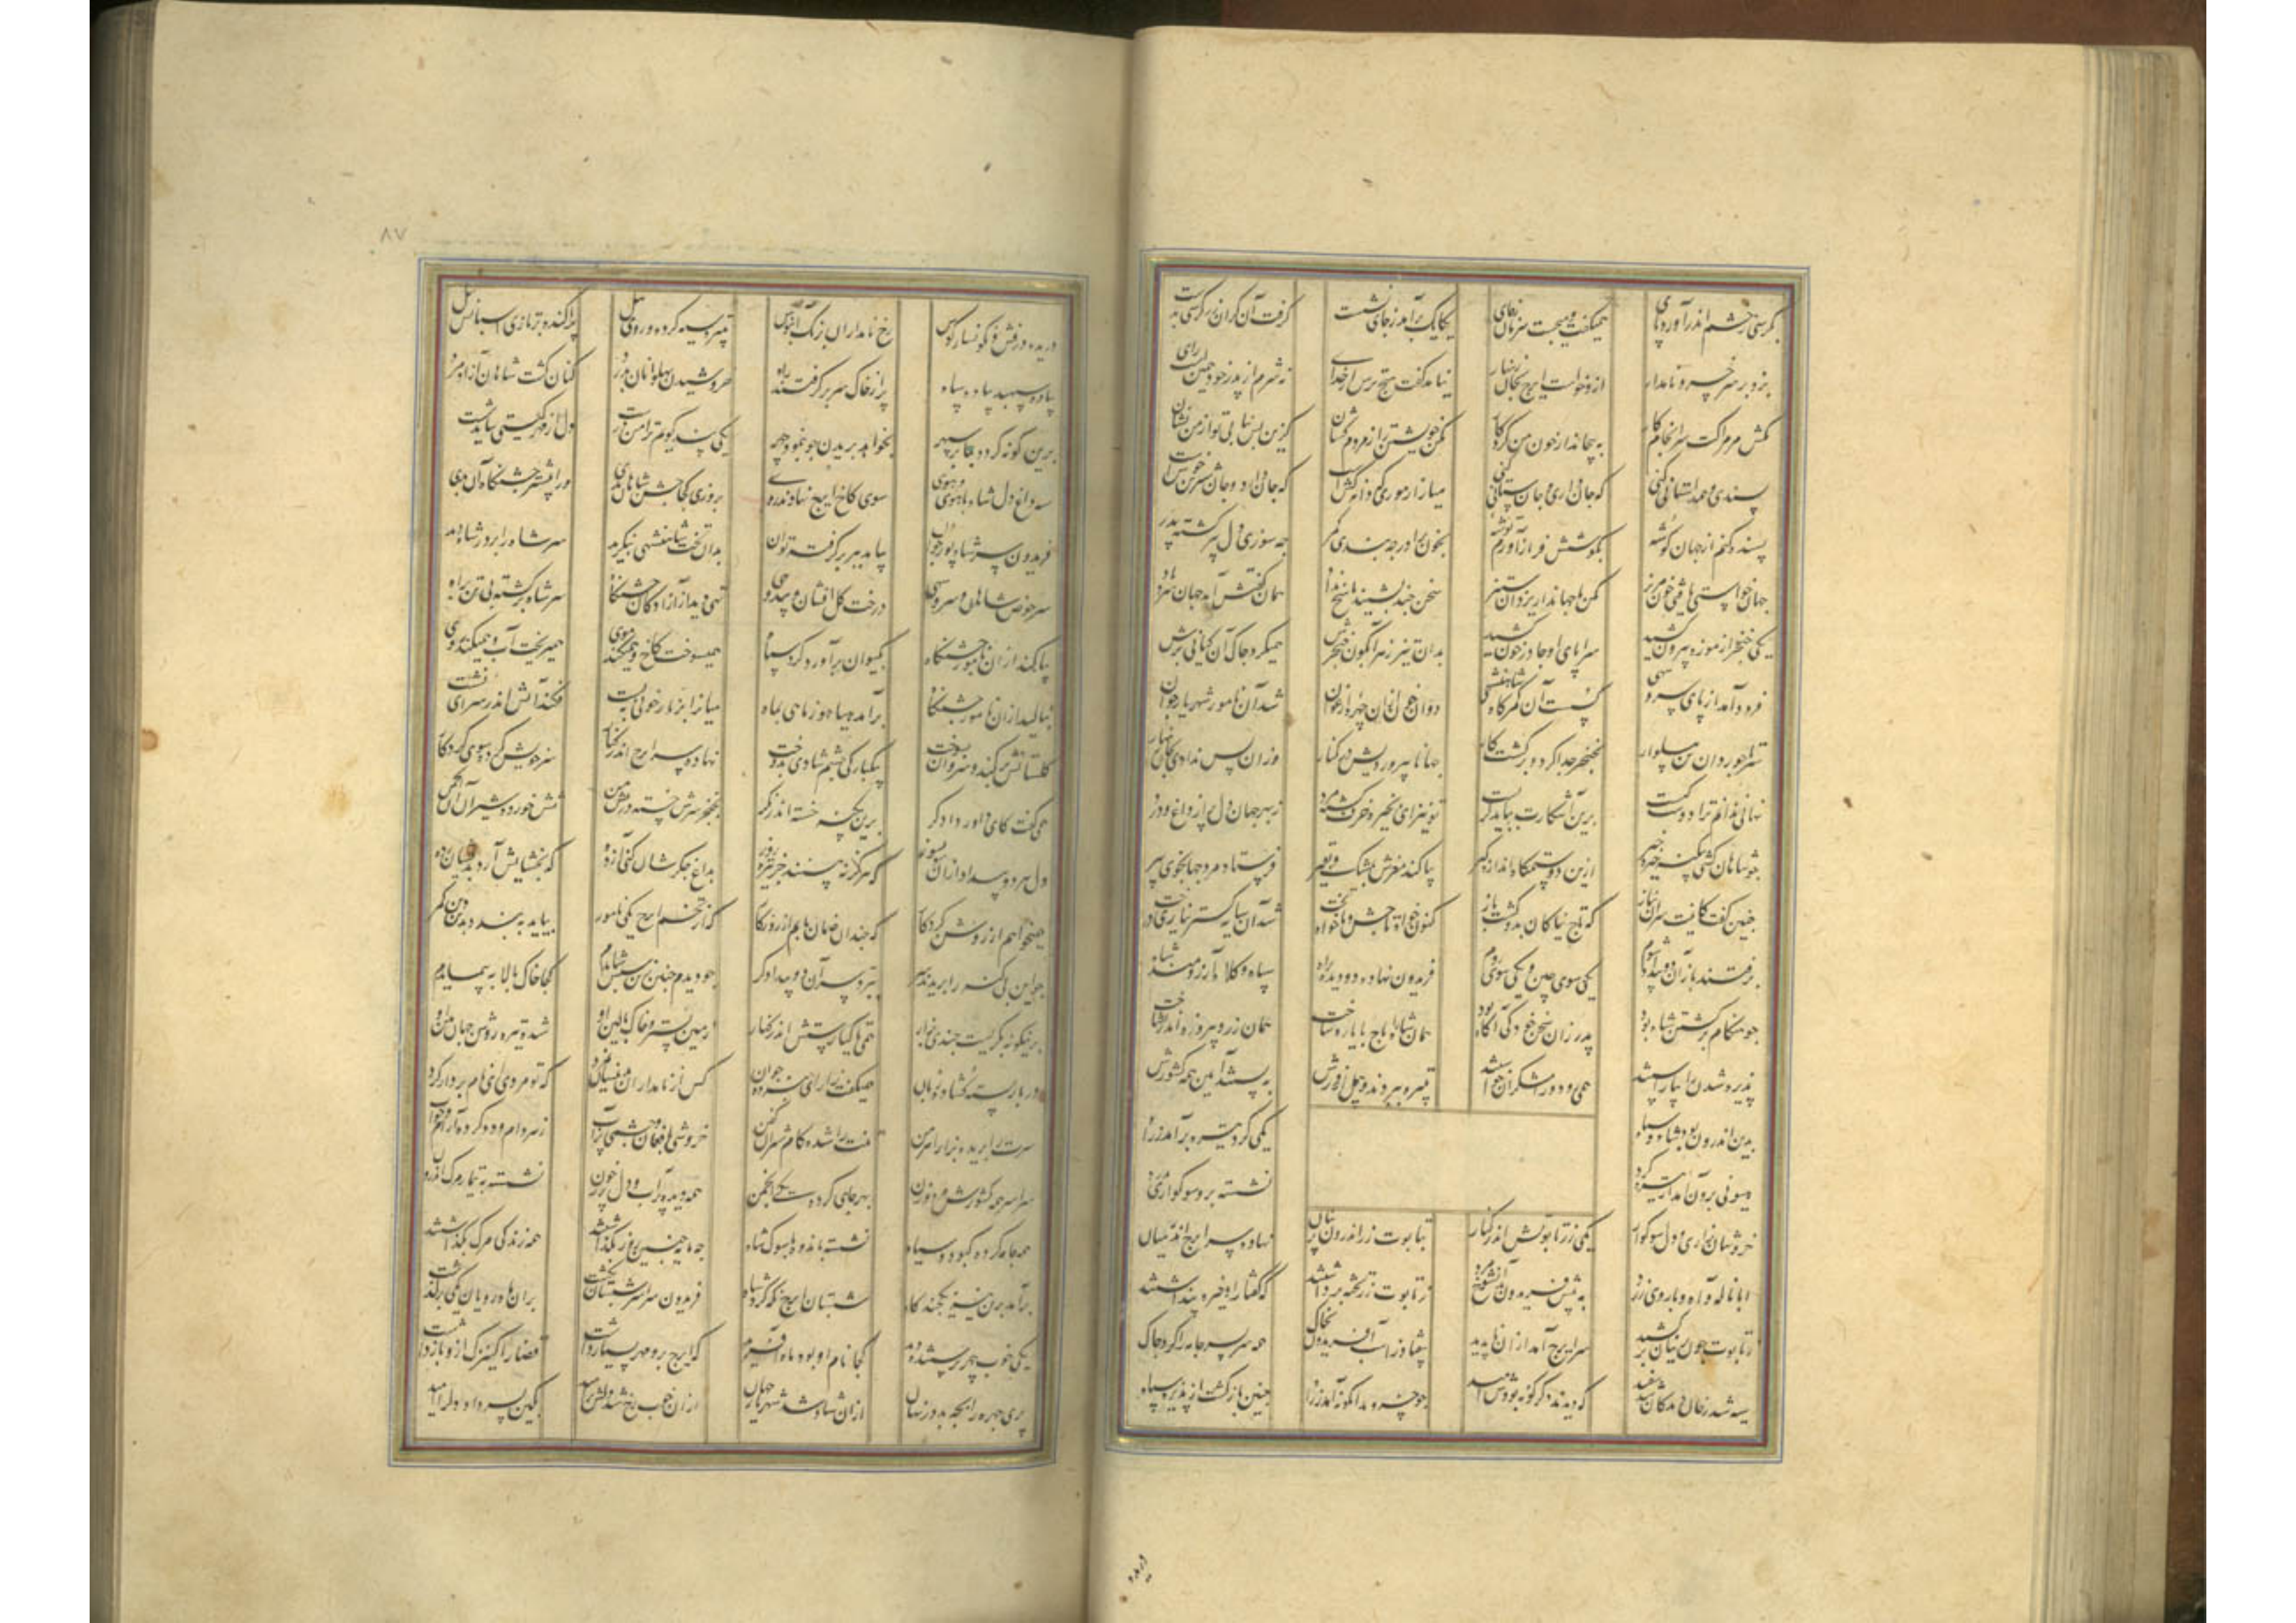 بکرسی بخشم اندر آورد پای همیکفت و میجست یکایک برآمد ز جای نشست کرفت آن کران زر کرسی بدست
بزد بر سر خسرو نامدار ازو خواست ایرج بجان زینهار نیامدت کفت هیچ ترس از خدای نه شرم از پدر خود همین است رای
مکش مر مرا کت سرانجام کار به پیچاند از خون من کردکار مکن خویشتن را ز مردم کشان کزین پس نیابی تو از من نشان
پسندی و همداستانی کنی که جان داری و جان ستانی کنی میازار موری که دانه کش است که جان دارد و جان شیرین خوش است
پسنده کنم از جهان کوشه بکوشش فراز آورم توشه بخون برادر چه بندی کمر چه سوزی دل پیر کشته پدر
جهان خواستی یافتی خون مریز مکن با جهاندار یزدان ستیز سخن چند بشنید پاسخ نداد همان کفتش آمد همان سرد باد
یکی خنجر از موزه بیرون کشید سراپای او چادر خون کشید بدان تیز زهر آبکون خنجرش همیکرد چاک آن کیانی برش
فرود آمد از پای سرو سهی کسست آن کمرکاه شاهنشهی دوان خون ازان چهره ارغوان شد آن نامور شهریار جوان
سر تاجور زان تن پیلوار بخنجر جدا کرد و برکشت کار جهانا بپروردیش در کنار وزان پس ندادی بجان زینهار
نهانی ندانم ترا دوست کیست برین آشکارت بباید کریست تو نیز ای بخیره خرف کشته مرد ز بهر جهان دل پر از داغ و درد
چو شاهان کشی بکینه خیره خیر ازین دو ستمکاره اندازه کیر بیاکند مغزش بمشک و عبیر فرستاد مرد جهانجوی پیر
چنین کفت کاینت سر آن نیاز که تاج نیاکان بدو کشت باز کنون خواه تاجش ده و خواه تخت شد آن سایه کستر نیازی درخت
برفتند باز آن دو بیداد شوم یکی سوی چین و یکی سوی روم فریدون نهاده دو دیده براه سپاه و کلاه آرزومند شاه
چو هنکام برکشتن شاه بود پدر زان سخن خود کی آکاه بود همان شاه را تاج با یاره ساخت همان زر و پیروزه اندر نشاخت
پذیره شدن را بیاراستند می و رود و رامشکران خواستند تبیره ببردند و پیل از درش ببستند آذین همه کشورش
بدین اندرون بود شاه و سپاه یکی کرد تیره برآمد ز راه
هیونی برون آمد از تیره کرد نشسته برو سوکواری بدرد
خروشان بزاری و دل سوکوار یکی زر تابوتش اندر کنار بتابوت زر اندرون پرنیان نهاده سر ایرج اندر میان
ابا ناله و آه و با روی زرد به پیش فریدون شد آن نیکمرد ز تابوت زر تخته برداشتند که کفتار او خیره پنداشتند
ز تابوت چون پرنیان برکشید سر ایرج آمد ازان ها پدید بیفتاد ز اسب آفریدون بخاک همه سر بسر جامه را کرد چاک
سیه شد رخان دیدکان شد سفید که دیدن دکر کونه بودش امید چو خسرو بدانکونه آمد ز راه چنین بازکشت از پذیره سپاه
دریده
۸۷
دریده درفش و نکونسار کوس رخ نامداران برنک آبنوس تبیره سیه کرده و روی پیل پراکنده بر تازی اسبانش نیل
پیاده سپهبد پیاده سپاه پر از خاک سر برکرفتند راه خروشیدن پهلوانان بدرد کنان کوشت شاهان آزاد مرد
برین کونه کردد بما بر سپهر بخواهد بریدن چو بنمود چهر یکی پند کویم ترا من درست دل از مهر کیتی ببایدت شست
سپه داغ دل شاه با های و هوی سوی کاخ ایرج نهادند روی بروزی کجا جشن شاهان بدی ورا بیشتر جشنکاه آن بدی
فریدون سر شاه پور جوان بیامد ببر برکرفته نوان بدان تخت شاهنشهی بنکرید سر شاه را بر در شاه دید
سر حوض شاهان و سرو سهی درخت کل افشان و بید و بهی تهی دید از آزادکان جشنکاه سر شاه برکشته بی تن براه
بیاکند ازان نامور جشنکاه بکیوان برآورد کرد سیاه همیسوخت کاخ و همیکند موی همیریخت آب و همیکند روی
بنالید ازان نامور جشنکاه برآمد سیاهو ز ماهی بماه میانرا بزنار خونی ببست فکند آتش اندر سرای نشست
کلستانش برکند و سروان بسوخت بیکبارکی چشم شادی بدوخت نهاده سر ایرج اندر کنار سر خویش کرده سوی کردکار
همی کفت کای داور دادکر برین بیکنه خسته اندر نکر بخنجر سرش خسته در پیش من تنش خورده شیران آن انجمن
دل هر دو بیداد ازان سان بسوز که هرکز نبینند جز تیره روز بداغ جکرشان کنی آزده که بخشایش آرد بریشان دده
همیخواهم از روشن کردکار که چندان زمان یابم از روزکار که از تخم ایرج یکی نامور بیاید به بندد بدین کین کمر
چو این بی کنه را بریدند سر ببرد سر آن دو بیدادکر چو دیدم چنین زین سپس شایدم کجا خاک بالا به پیمایدم
برینکونه بکریست چندی بزار همی تا کیا رستش اندر کنار زمین بستر و خاک بالین او شده تیره روشن جهان بین او
در بار بسته کشاده زبان همیکفت زار ای سرو جوان کس از نامداران چنین نمرد که تو مردی ای نامبردار کرد
سرت را بریده بزار اهرمن تنت را شده کام شیران کفن خروشی و افغان و چشمی پر آب ز هر دام و دد کرده آرام و خواب
سراسر همه کشورش مرد و زن بهر جای کرده یکی انجمن همه دیده پر آب و دل پر ز خون نشسته به تیمار مرک اندرون
همه جامه کرده کبود و سیاه نشسته باندوه با سوک شاه چه مایه چنین روز بکذاشتند همه زندکی مرک پنداشتند
برآمد برین نیز یکچند کاه شبستان ایرج نکه کرد شاه فریدون سراسر شبستان بکشت بران ماه رویان همی برکذشت
یکی خوب چهر پرستنده دید کجا نام او بود ماه آفرید که ایرج برو مهر بسیار داشت قضا را کنیزک ازو بار داشت
پری چهره را بچه بد در نهان ازان شاد شد شهریار جهان ازان خوب رخ شد دلش پر امید بکین پسر داد دل را امید